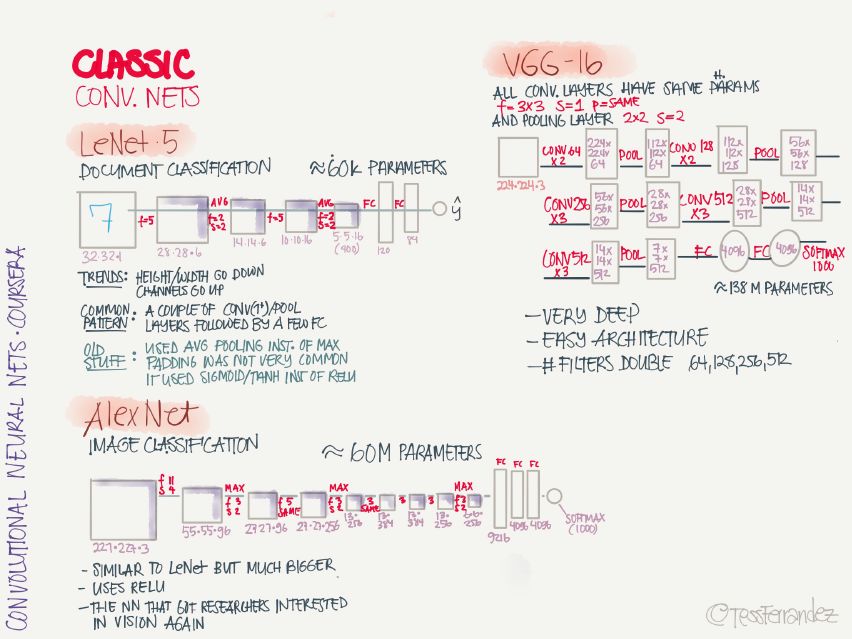 CLASSIC
CONV. NETS
LeNet-5
DOCUMENT CLASSIFICATION ≈60K PARAMETERS
7
f=5
AVG
f=2
S=2
f=5
AVG
f=2
S=2
FC
FC
ŷ
32·32·1
28·28·6
14·14·6
10·10·16
5·5·16
(400)
120
84
TRENDS: HEIGHT/WIDTH GO DOWN
CHANNELS GO UP
COMMON PATTERN: A COUPLE OF CONV(1+)/POOL
LAYERS FOLLOWED BY A FEW FC
OLD STUFF: USED AVG POOLING INST. OF MAX
PADDING WAS NOT VERY COMMON
IT USED SIGMOID/TANH INST OF RELU
AlexNet
IMAGE CLASSIFICATION ≈ 60M PARAMETERS
f 11
S 4
MAX
f 3
S 2
f 5
SAME
MAX
f 3
S 2
3
SAME
3
3
MAX
f 3
S 2
FC
FC
FC
227·227·3
55·55·96
27·27·96
27·27·256
13·
256
13·
384
13·
384
13·
256
6·6·
256
9216
4096
4096
SOFTMAX
(1000)
- SIMILAR TO LeNet BUT MUCH BIGGER
- USES RELU
- THE NN THAT GOT RESEARCHERS INTERESTED
IN VISION AGAIN
VGG-16
H.
ALL CONV. LAYERS HAVE SAME PARAMS
f=3X3 S=1 P=SAME
AND POOLING LAYER 2X2 S=2
224·224·3
CONV 64
X2
224x
224x
64
POOL
112x
112x
64
CONV 128
X2
112x
112x
128
POOL
56x
56x
128
CONV 256
X3
56x
56x
256
POOL
28x
28x
256
CONV 512
X3
28x
28x
512
POOL
14x
14x
512
CONV 512
X3
14x
14x
512
POOL
7x
7x
512
FC
4096
FC
4096
SOFTMAX
1000
≈138 M PARAMETERS
- VERY DEEP
- EASY ARCHITECTURE
- # FILTERS DOUBLE 64,128,256,512
CONVOLUTIONAL NEURAL NETS · COURSERA
©TessFerrandez